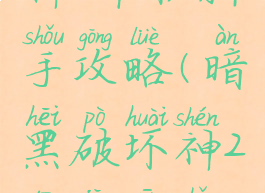 shǒu gōng lüè àn
手攻略(暗
hēi pò huài shén
黑破坏神2